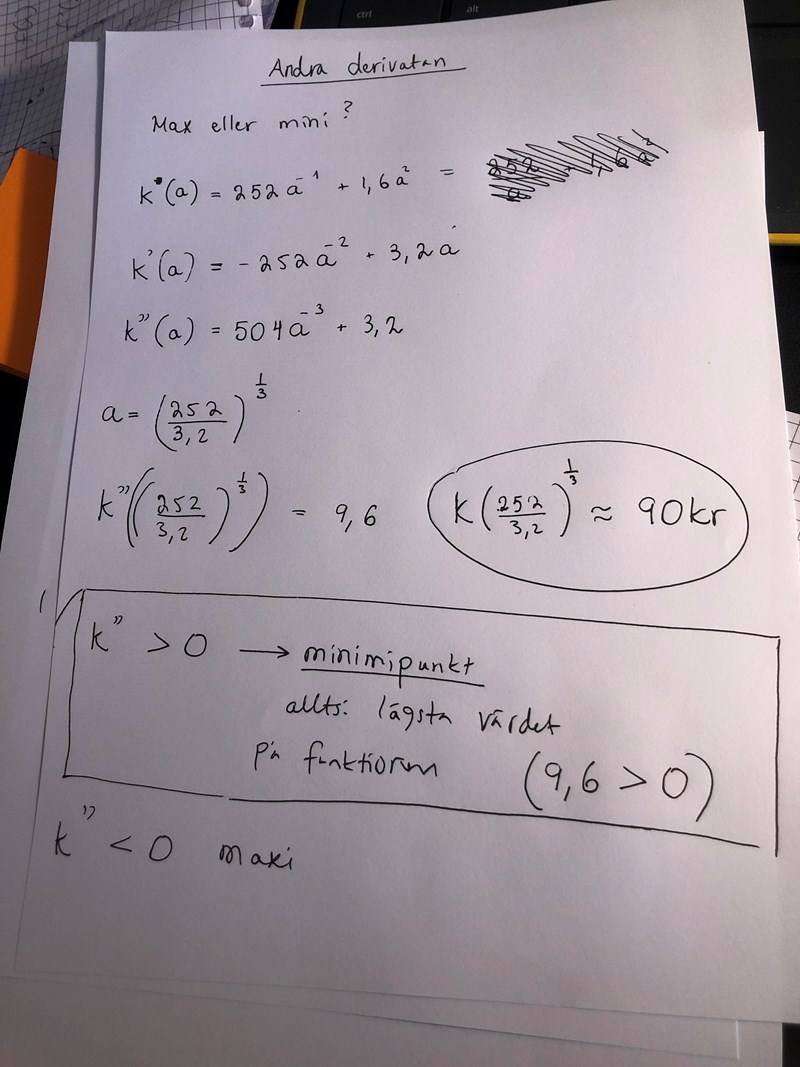 ctrl
alt
Andra derivatan
Max eller mini?
k(a) = 252a⁻¹ + 1,6a² =
k'(a) = -252a⁻² + 3,2a
k''(a) = 504a⁻³ + 3,2
a = (252/3,2)^(1/3)
k''((252/3,2)^(1/3)) = 9,6
k(252/3,2)^(1/3) ≈ 90kr
k'' > 0 → minimipunkt
allts: lägsta värdet
på funktionen
(9,6 > 0)
k'' < 0 maxi